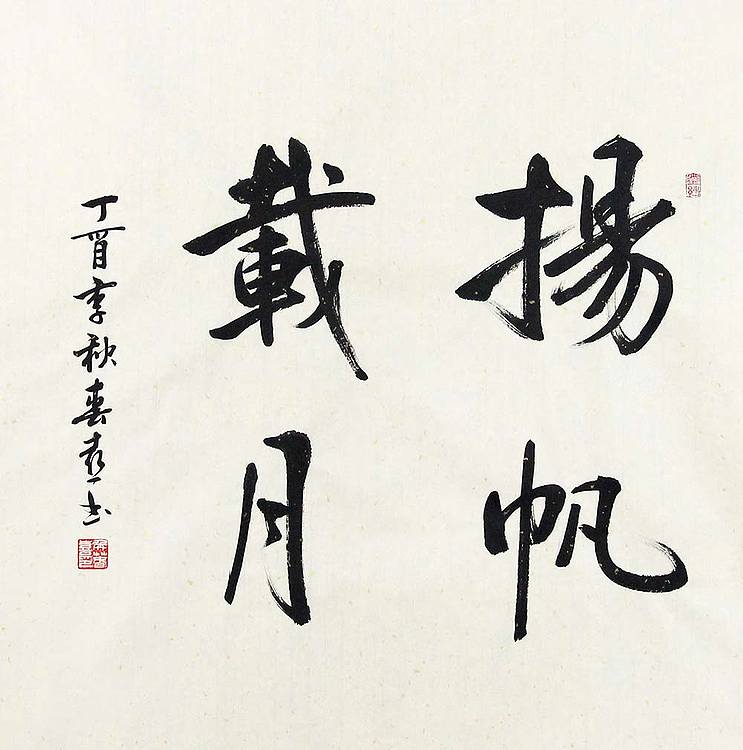 揚帆
載月
丁酉季秋春